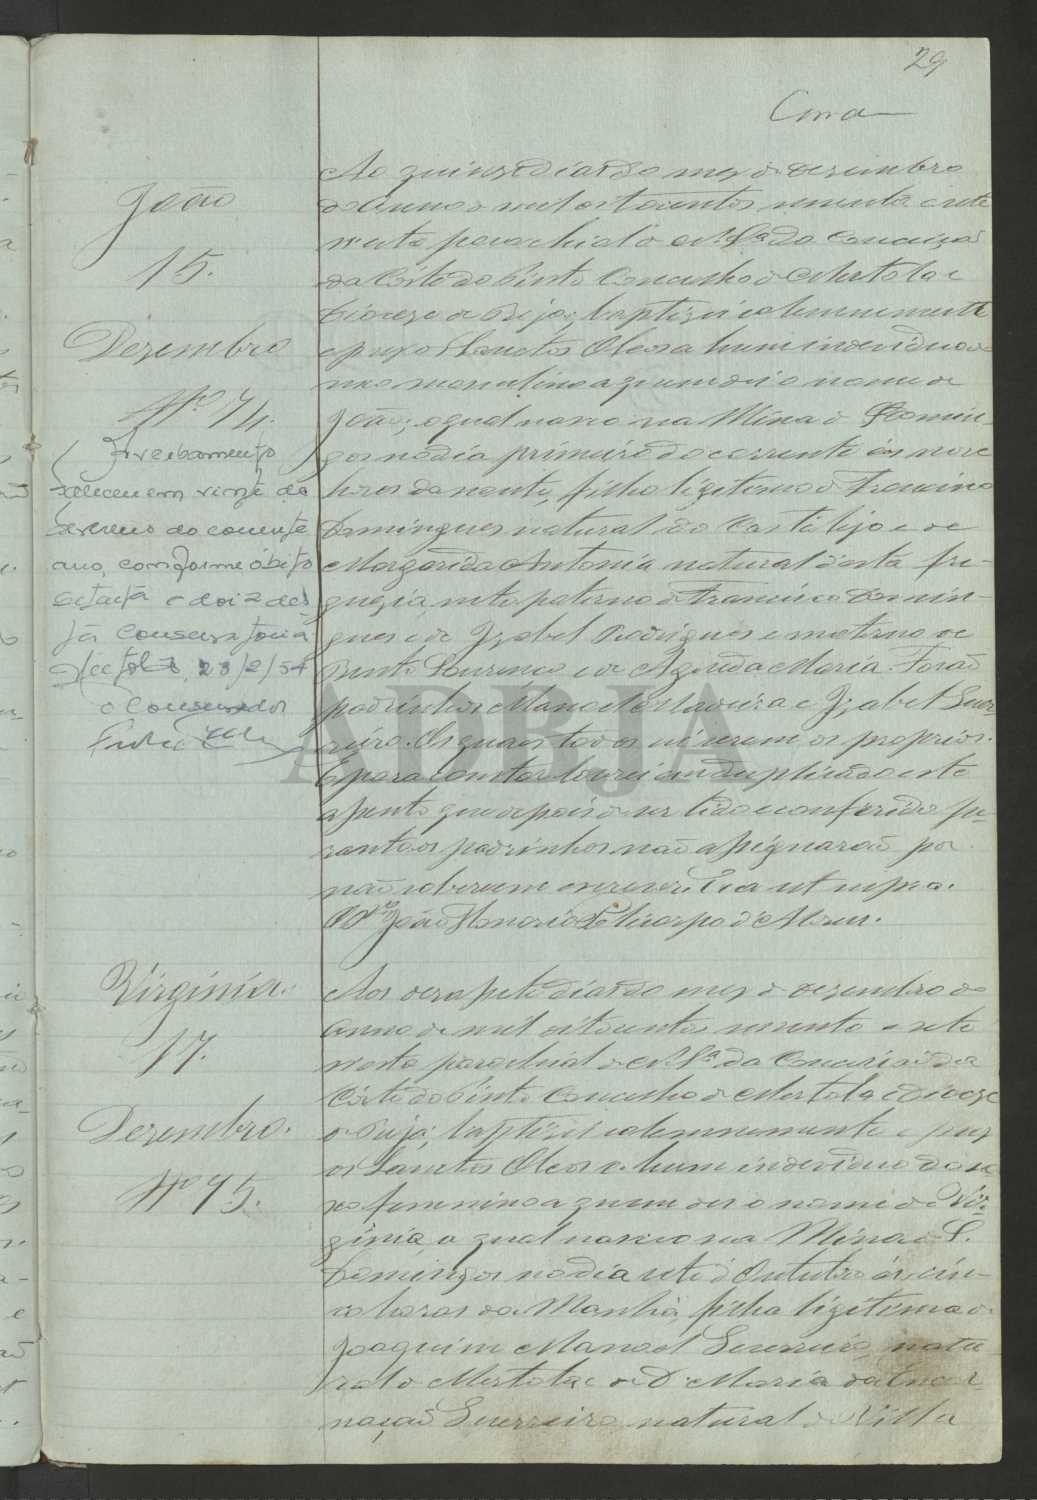 29
João
15.
Dezembro
Nº 74.
Averbamento
Faleceu em vinte de
Fevereiro do corrente
ano, conforme óbito
setenta e dois des-
ta Conservatória
Mértola, 23/2/54
O Conservador
Ao quinze dias do mez de Dezembro
do Anno de mil oitocentos noventa e sete
n'esta parochial de N. Sra. da Conceição
da Côrte do Pinto Concelho de Mertola e
Diocese de Beja, baptizei solemnemente
e puz os Sanctos Oleos a hum individuo do
sexo masculino a quem dei o nome de
João; o qual nasceo na Mina de S. Domin-
gos no dia primeiro do corrente ás nove
horas da noute, filho legitimo de Francisco
Domingues natural do e de
Margarida Antonia natural d'esta fre-
guezia, neto paterno de Francisco Domin-
gues e de Izabel Rodrigues e materno de
Bento Lourenço e de Maria. Forão
padrinhos Manoel Madeira e Izabel Guer-
reiro. Os quaes todos sei serem os proprios.
E para constar lavrei em duplicado este
assento que depois de ser lido e conferido pe-
rante os padrinhos não assignarão por
não saberem escrever. Era ut supra.
O João Honorio Policarpo
Virginia.
17.
Dezembro.
Nº 75.
Aos desasete dias do mez de Dezembro do
Anno de mil oitocentos noventa e sete
n'esta parochial de N. Sra. da Conceição da
Côrte do Pinto Concelho de Mertola e Diocese
de Beja, baptizei solemnemente e puz
os Sanctos Oleos a hum individuo do se-
xo feminino a quem dei o nome de Vir-
ginia, a qual nasceo na Mina de S.
Domingos no dia sete de Outubro ás cin-
co horas da Manhã, filha legitima de
Joaquim Manoel Guerreiro, natu-
ral de Mertola e de D. Maria da Encar-
nação Guerreiro natural de Villa
ADBJA